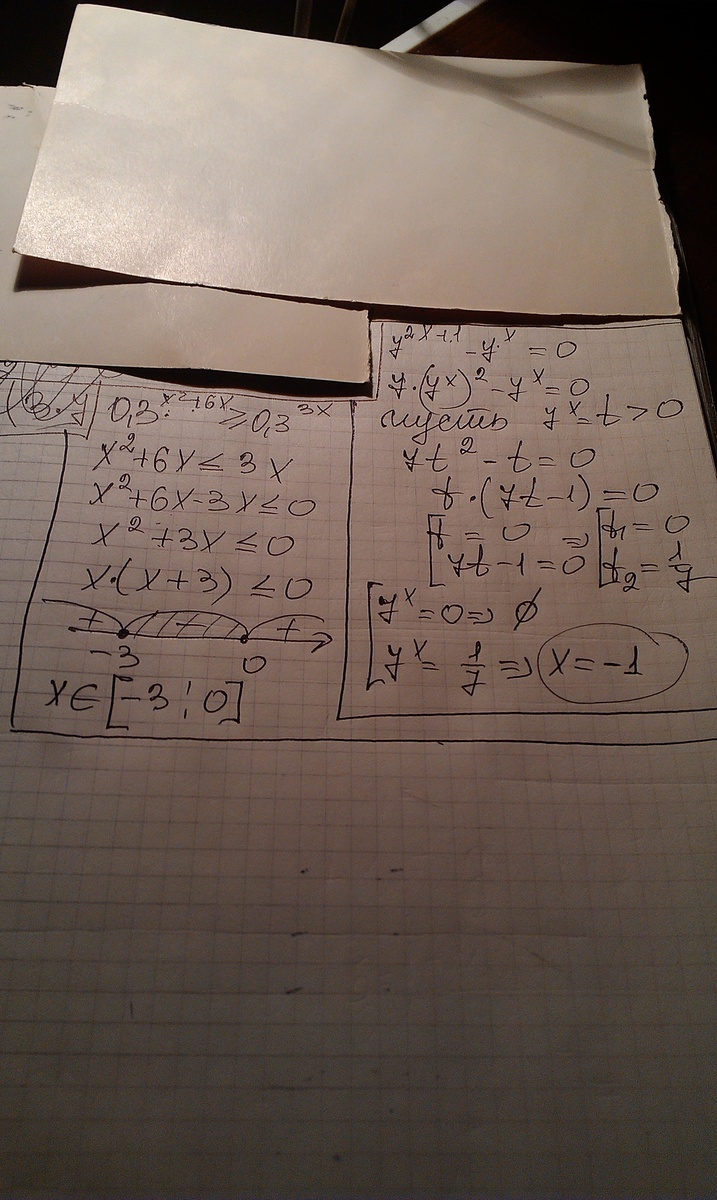 0,3^{x²+6x} ≥ 0,3^{3x}
x²+6x ≤ 3x
x²+6x-3x ≤ 0
x²+3x ≤ 0
x·(x+3) ≤ 0
-3 0
x∈[-3;0]
7^{2x+1} - 7^x = 0
7·(7^x)² - 7^x = 0
пусть 7^x = t > 0
7t² - t = 0
t·(7t-1) = 0
[t = 0 ⇒ [t₁ = 0
7t-1 = 0 t₂ = 1/7
[7^x = 0 ⇒ ∅
7^x = 1/7 ⇒ x = -1